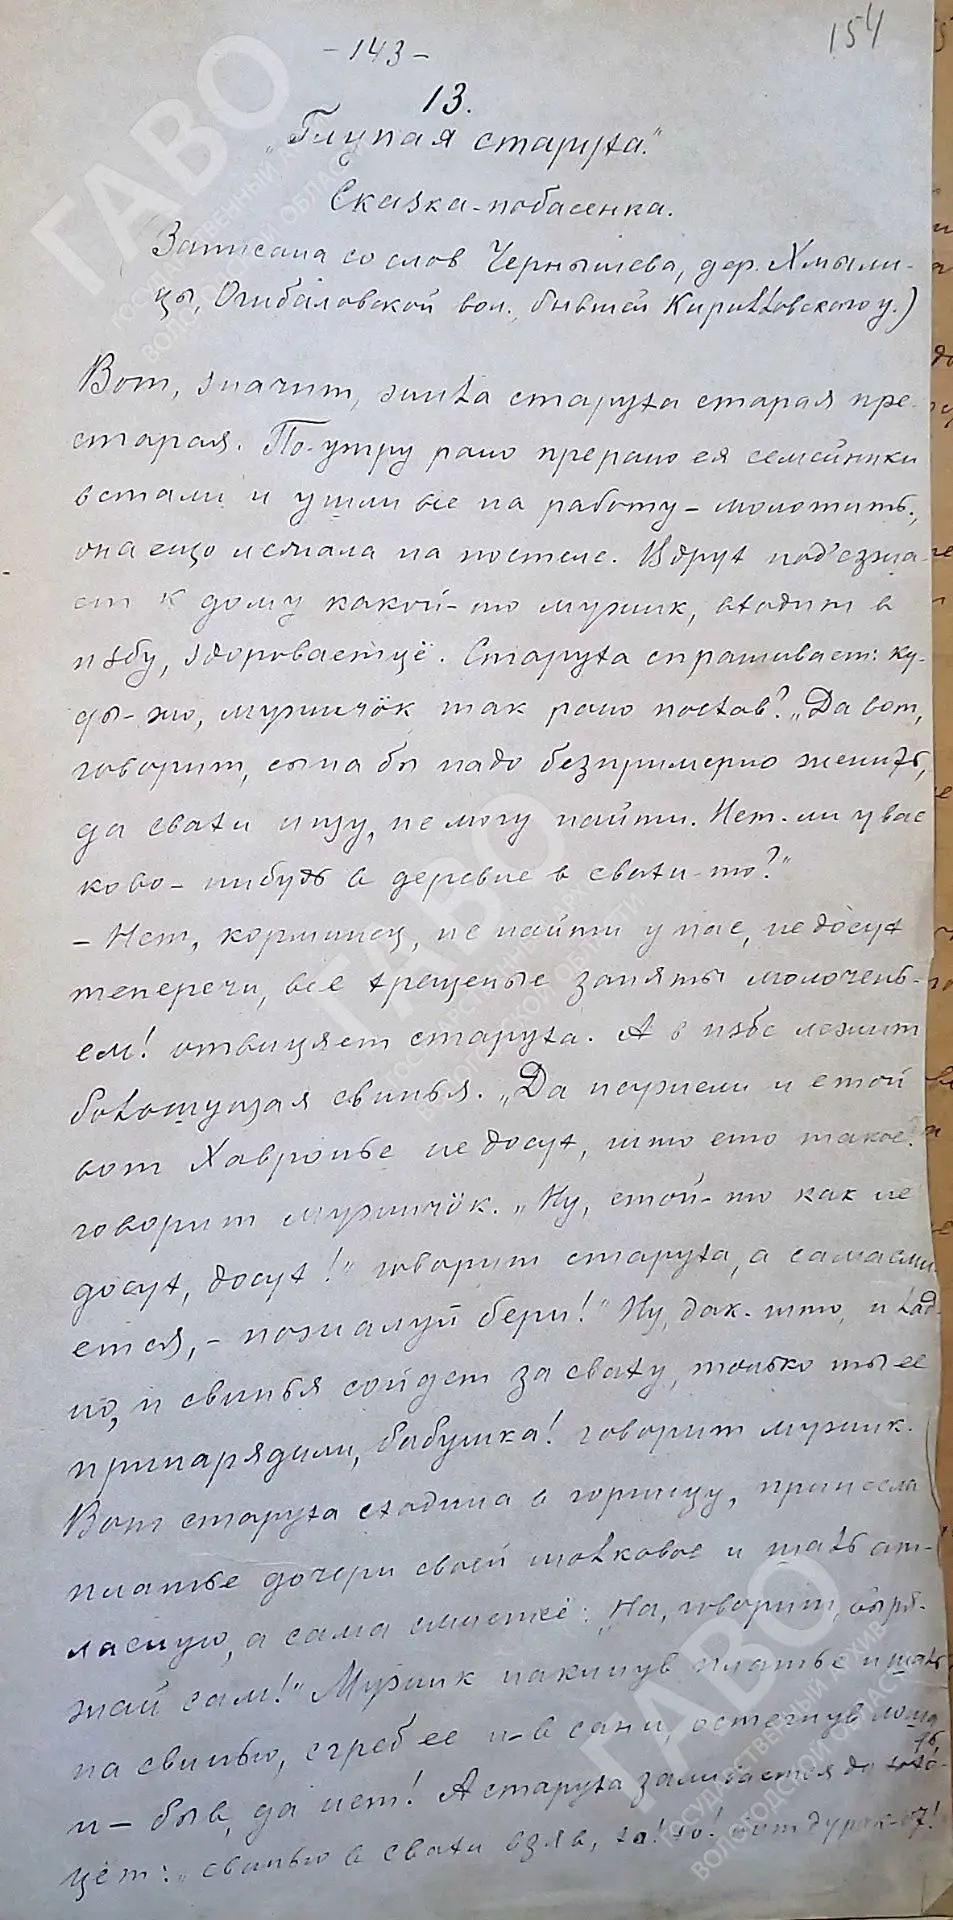 - 143 -
154
13.
„Глупая старуха."
Сказка-побасенка.
(Записана со слов Чернышева, дер. Хмыли-
цы, Огибаловской вол., бывшей Кирилловского у.)
Вот, значит, жила старуха старая пре-
старая. По-утру рано прерано ея семейники
встали и ушли все на работу – молотить,
она ещо лежала на постеле. Вдруг под'езжа-
ет к дому какой-то мужик, входит в
избу, здороваетцё. Старуха спрашивает: ку-
ды-жо, мужичёк так рано поехав? „Да вот,
говорит, сына бы надо безпримерно женить,
да сватьи ищу, не могу найти. Нет-ли у вас
ково-нибудь в деревне в сватьи-то?"
– Нет, корминец, не найти у нас, недосуг
теперечи, все крещеные заняты молоченьь-
ем! отвицяет старуха. А в избе лежит
большущая свинья. „Да неужели и етой
вот Хавронье недосуг, што ето такое?
говорит мужичёк. „Ну, етой-то как не
досуг, досуг!" говорит старуха, а сама сми-
етця, – пожалуй бери!" Ну, дак-што, и лад-
но, и свинья сойдет за сватью, только ты ее
принаряди, бабушка! говорит мужик.
Вот старуха сходила в горницу, принесла
платье дочери своей шолковое и шаль ат-
ласную, а сама смиетцё: „На, говорит, оъря-
жай сам!" Мужик накинув платье и шаль
на свинью, сгреб ее и – в сани, остегнув лоша
дь,
и – быв, да нет! А старуха заливаетця да хохо-
цёт: „свинью в сватьи взяв, ха! хо! вот дурак-от!"
ГАВО
ГОСУДАРСТВЕННЫЙ АРХИВ
ВОЛОГОДСКОЙ ОБЛАСТИ
ГАВО
ГОСУДАРСТВЕННЫЙ АРХИВ
ВОЛОГОДСКОЙ ОБЛАСТИ
ГАВО
ГОСУДАРСТВЕННЫЙ АРХИВ
ВОЛОГОДСКОЙ ОБЛАСТИ